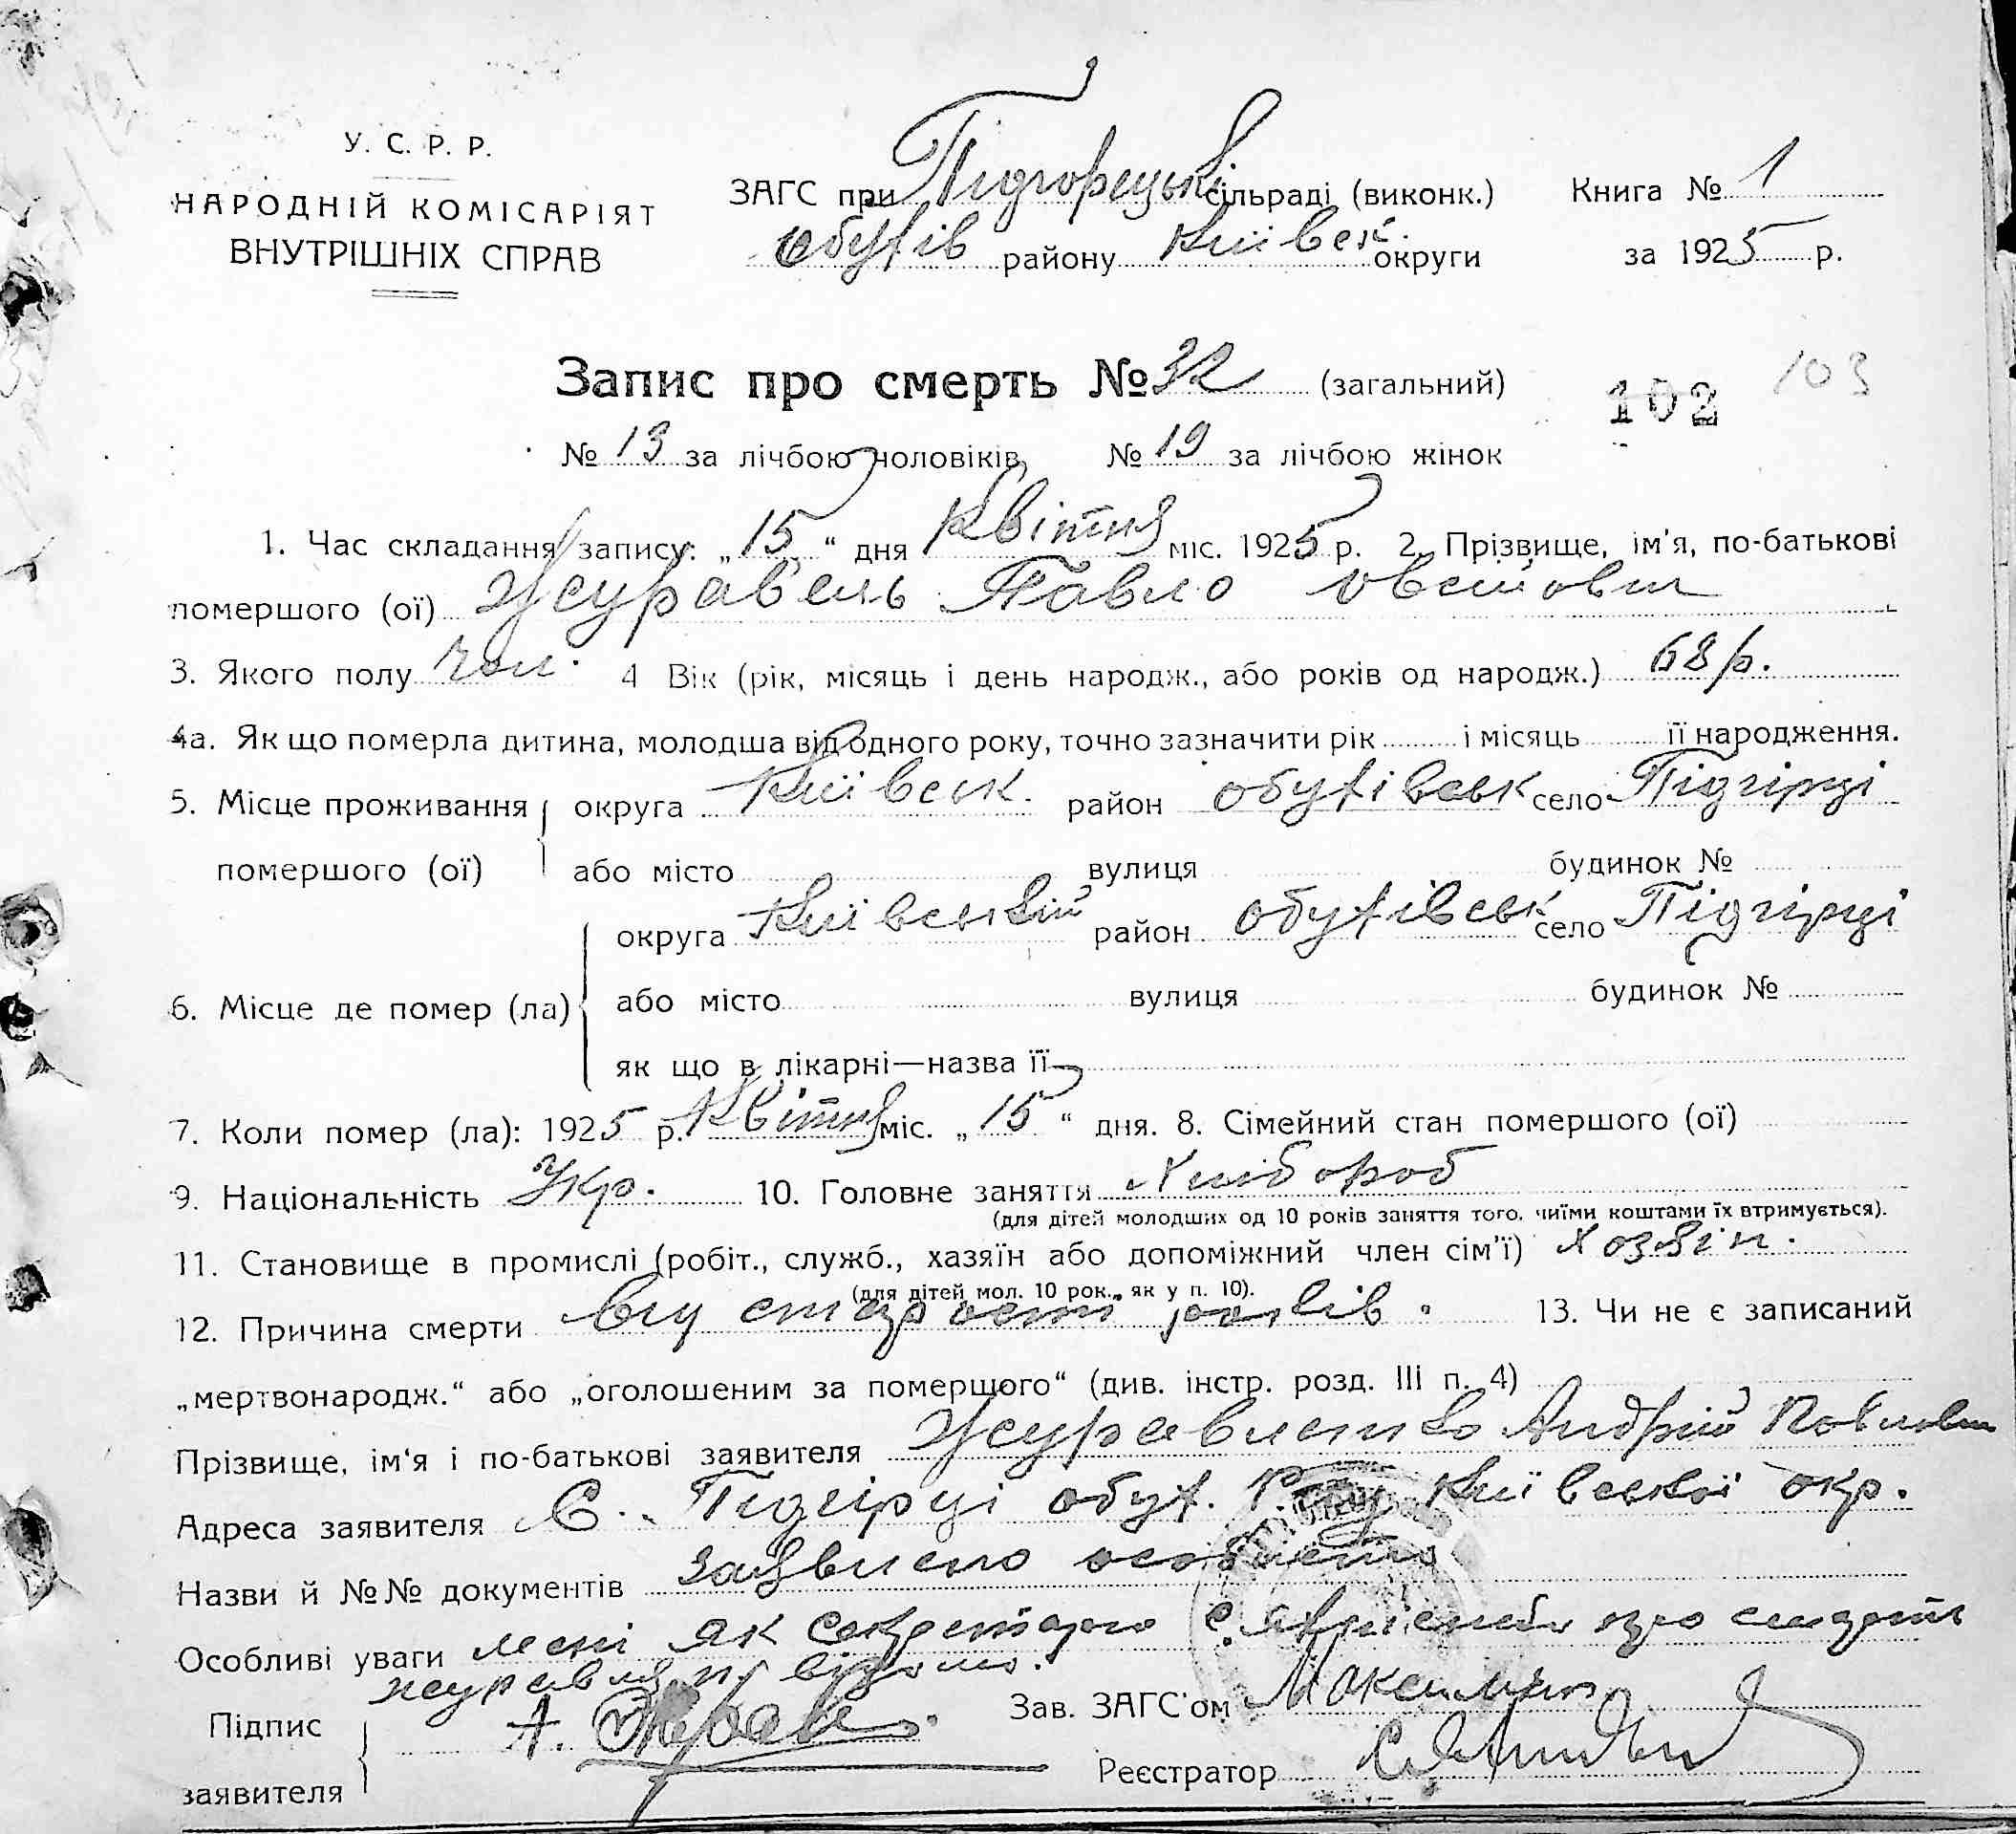 У. С. Р. Р.
НАРОДНІЙ КОМІСАРІЯТ
ВНУТРІШНІХ СПРАВ
ЗАГС при Підгорецькі сільраді (виконк.)
Обухів району Київськ. округи
Книга № 1
за 1925 р.
Запис про смерть № 32 (загальний)
102 103
№ 13 за лічбою чоловіків № 19 за лічбою жінок
1. Час складання запису: „15“ дня Квітня міс. 1925 р. 2. Прізвище, ім'я, по-батькові
помершого (ої) Журавель Павло
3. Якого полу чол. 4 Вік (рік, місяць і день народж., або років од народж.) 68 р.
4а. Як що померла дитина, молодша від одного року, точно зазначити рік і місяць її народження.
5. Місце проживання округа Київськ. район Обухівськ село Підгірці
помершого (ої) або місто вулиця будинок №
округа Київській район Обухівськ село Підгірці
6. Місце де помер (ла) або місто вулиця будинок №
як що в лікарні—назва її
7. Коли помер (ла): 1925 р. Квітня міс. „15“ дня. 8. Сімейний стан помершого (ої)
9. Національність Укр. 10. Головне заняття Хлібороб
(для дітей молодших од 10 років заняття того, чиїми коштами їх втримується).
11. Становище в промислі (робіт., служб., хазяїн або допоміжний член сім'ї) Хозяін.
(для дітей мол. 10 рок., як у п. 10).
12. Причина смерти від старості років. 13. Чи не є записаний
„мертвонародж.“ або „оголошеним за помершого“ (див. інстр. розд. III п. 4)
Прізвище, ім'я і по-батькові заявителя Журавленко Андрій Павлович
Адреса заявителя С. Підгірці Обух. Р-ну Київської окр.
Назви й №№ документів заявлено особисто
Особливі уваги мені як секретарю про смерть
журавля відомо.
Підпис
заявителя А. Журав
Зав. ЗАГС'ом
Реєстратор